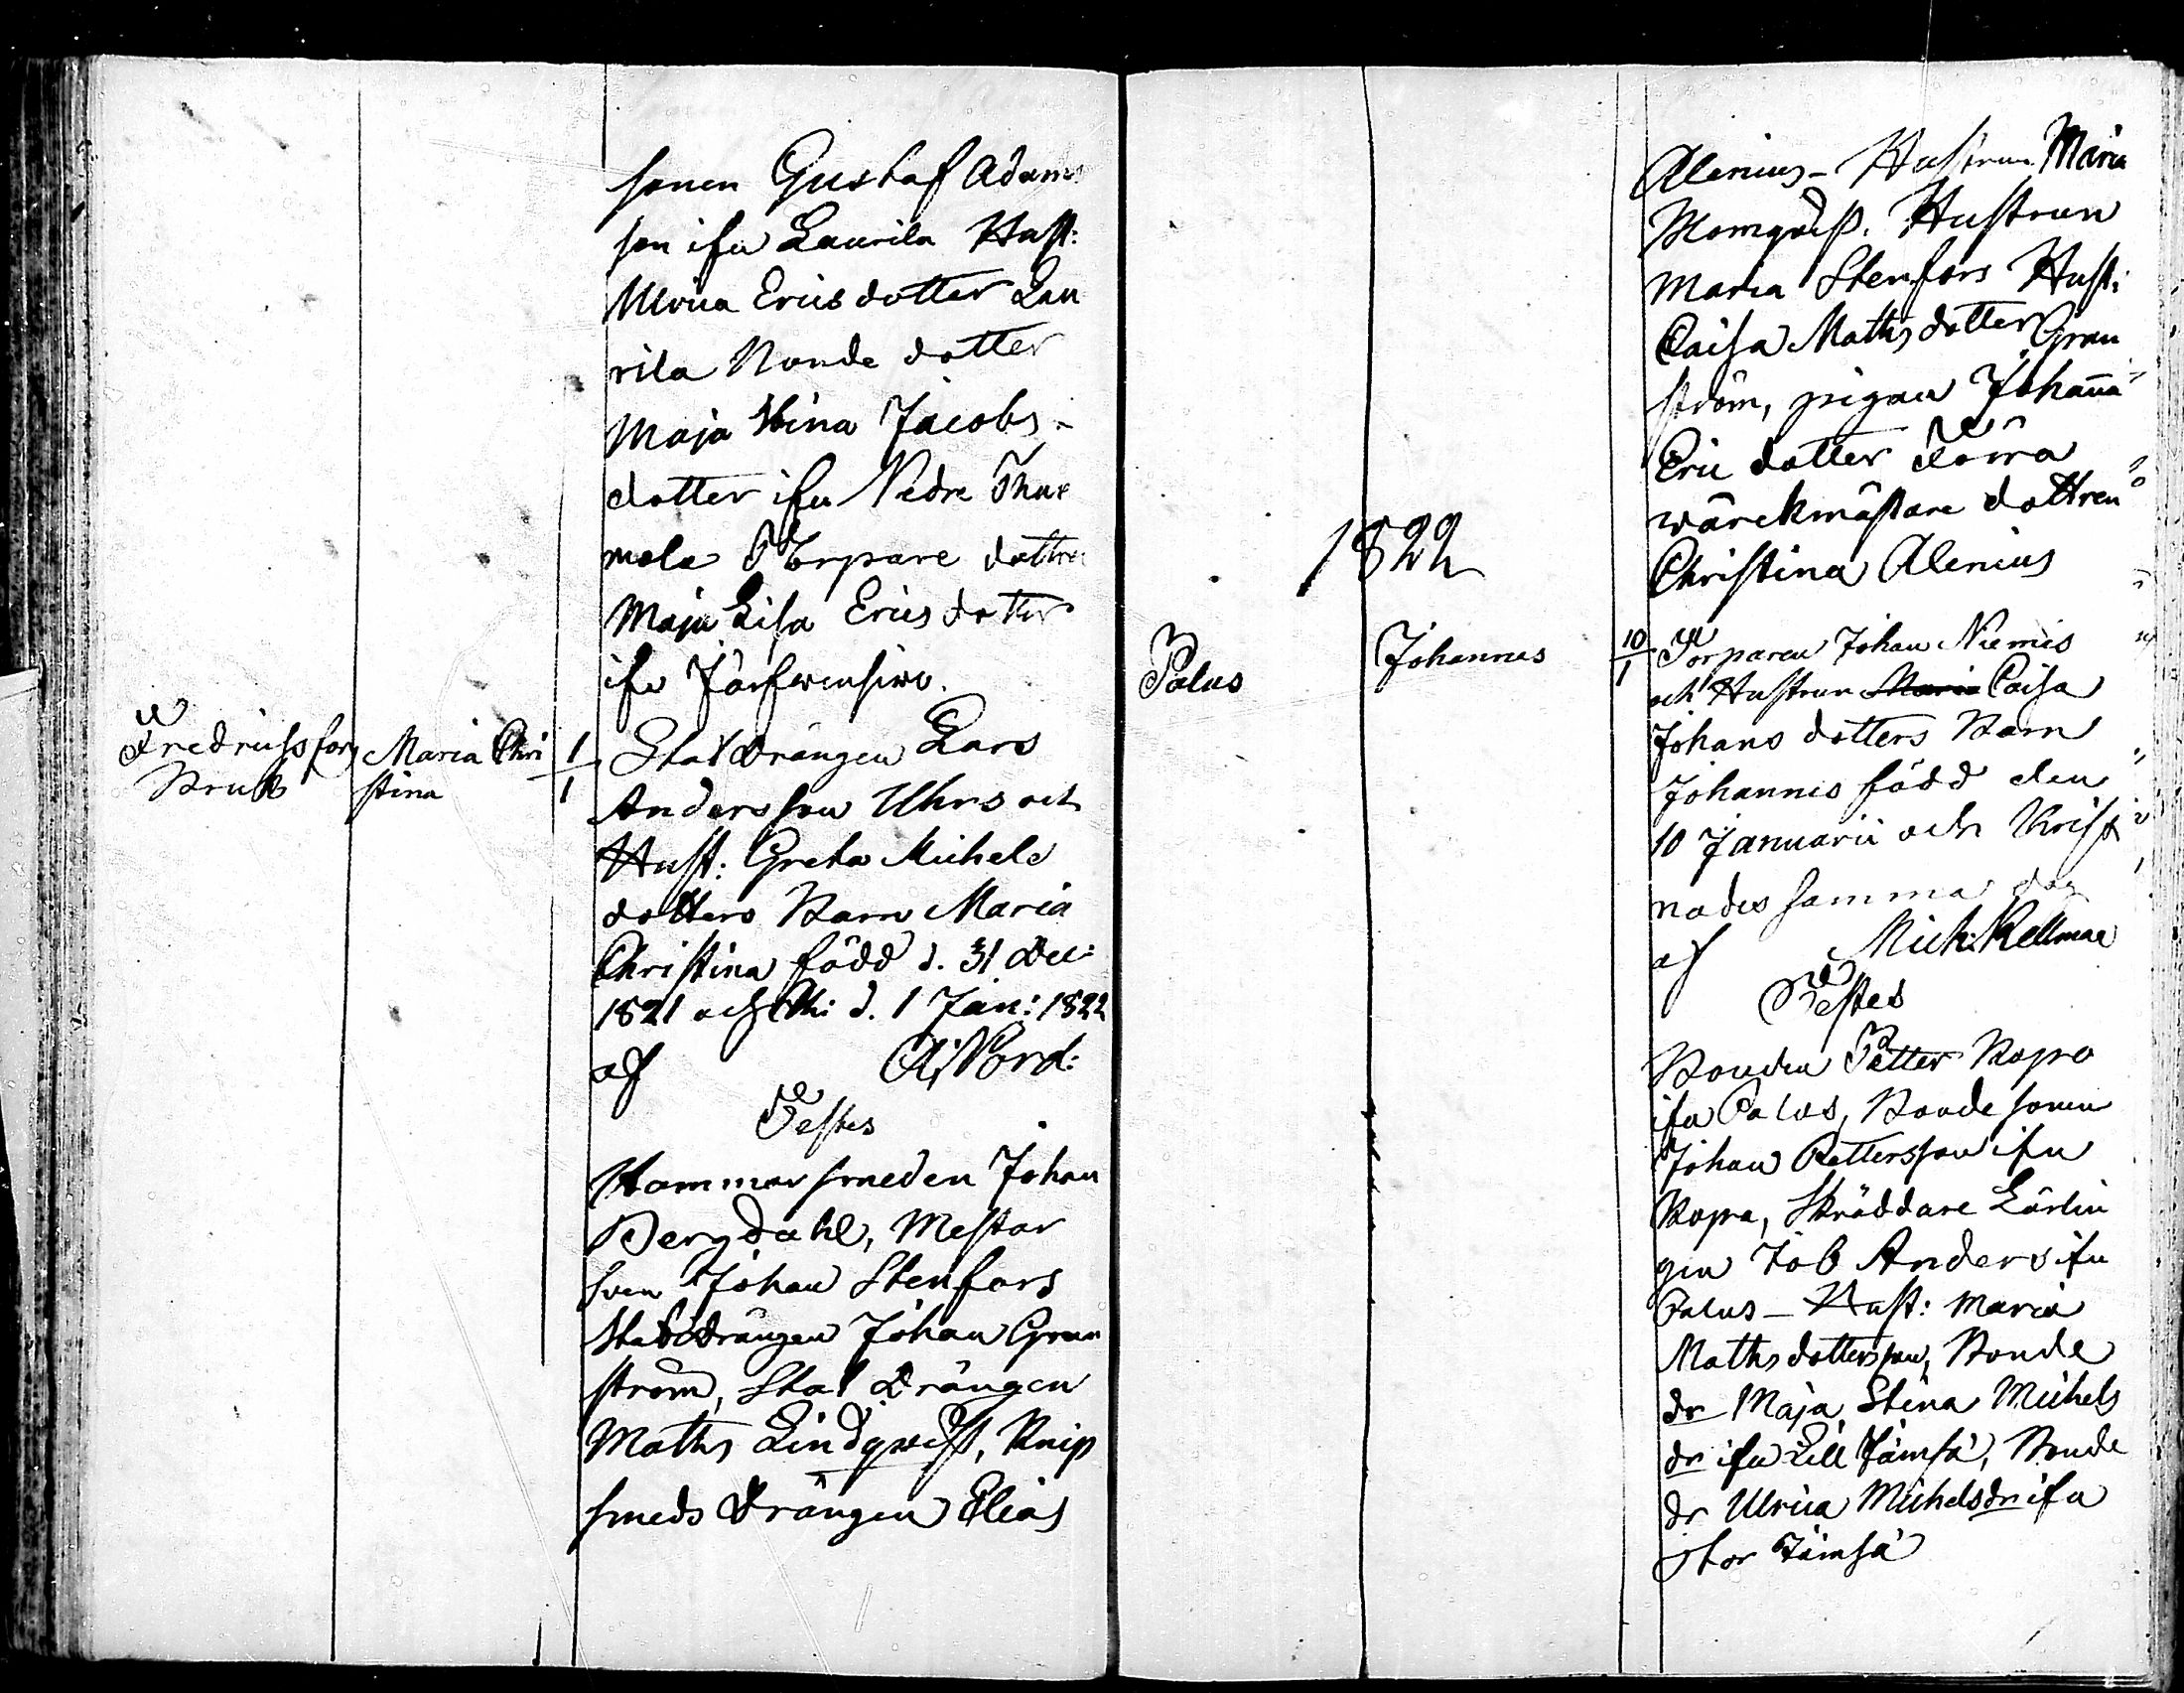 sonen Gustaf Adams
son ifrn Laurila Hust:
Ulrica Ericsdotter Lau
rila Bonde dotter
Maja Stina Jacobs-
dotter ifrn Nedre Thur
mola Torpare dottren
Maja Lisa Ericsdotter
ifrn
Fredrichsfors
Bruk
Maria Chri
stina
1
1
Statdrängen Lars
Andersson Uhrs och
Hust: Greta Michels
dotters Barn Maria
Christina född d. 31 Dec:
1821 och Chr: d. 1 Jan: 1822
af A: Nord:
Testes
Hammarsmeden Johan
Bergdahl, Mestar
sven Johan Stenfors
Statdrängen Johan Gran
ström, Stat Drängen
Maths Lindqwist, Knip
smeds Drängen Elias
1822
Alenius – Hustrun Maria
Blomqvist. Hustrun
Maria Stenfors Hust:
Caisa Mathsdotter Gran
ström, pigan Johanna
Eric dotter
wärckmästare dottren
Christina Alenius
Palus
Johannes
10
1
Torparen Johan Niemis
och Hustrun Maria Caisa
Johans dotters Barn
Johannes född den
10 Januarii och Christ
nades samma dag
af Mich: Kellman
Testes
Bonden Petter Kopra
ifrn Palus, Bonde sonen
Johan Pettersson ifrn
Kopra, Skräddare Lärlin
gen Job Anders ifrn
Palus – Hust: Maria
Mathsdotter, Bonde
dr Maja Stina Michels
dr ifrn Lill Jämsä, Bonde
dr Ulrica Michelsdr ifrn
Stor Jämsä